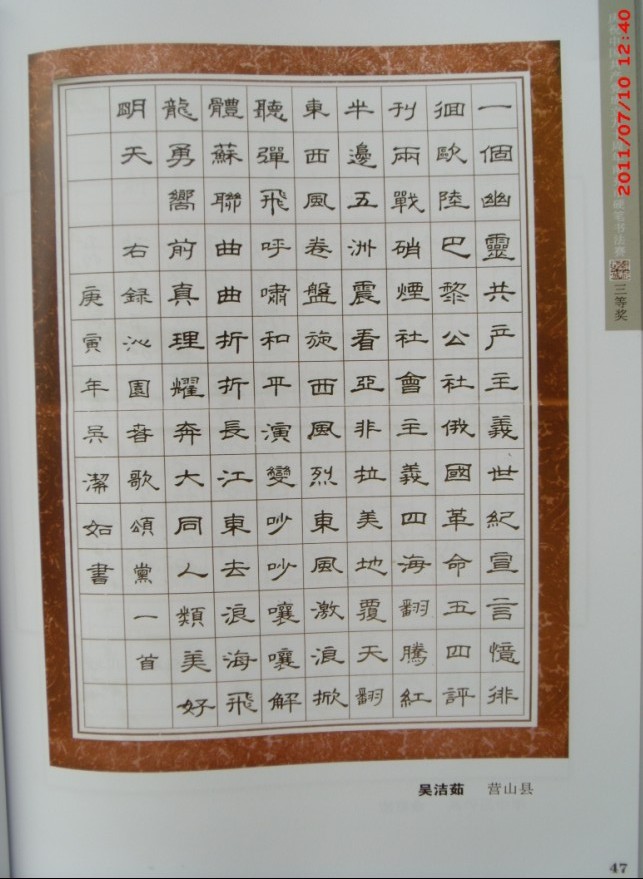 一個幽靈共产主義世紀宣言憶徘
徊歐陸巴黎公社俄國革命五四評
刊兩戰硝煙社會主義四海翻騰紅
半邊五洲震看亞非拉美地覆天翻
東西風卷盤旋西風烈東風激浪掀
聽彈飛呼嘯和平演變吵吵嚷嚷解
體蘇聯曲曲折折長江東去浪海飛
龍勇嚮前真理耀奔大同人類美好
明天 右録沁園春歌頌黨一首
庚寅年吳潔如書
硬笔书法赛
三等奖
2011/07/10 12:40
吴洁茹 营山县
47